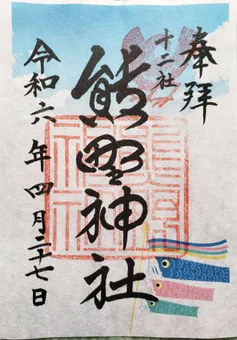 奉拝
十二社
熊野神社
令和六年四月二十七日